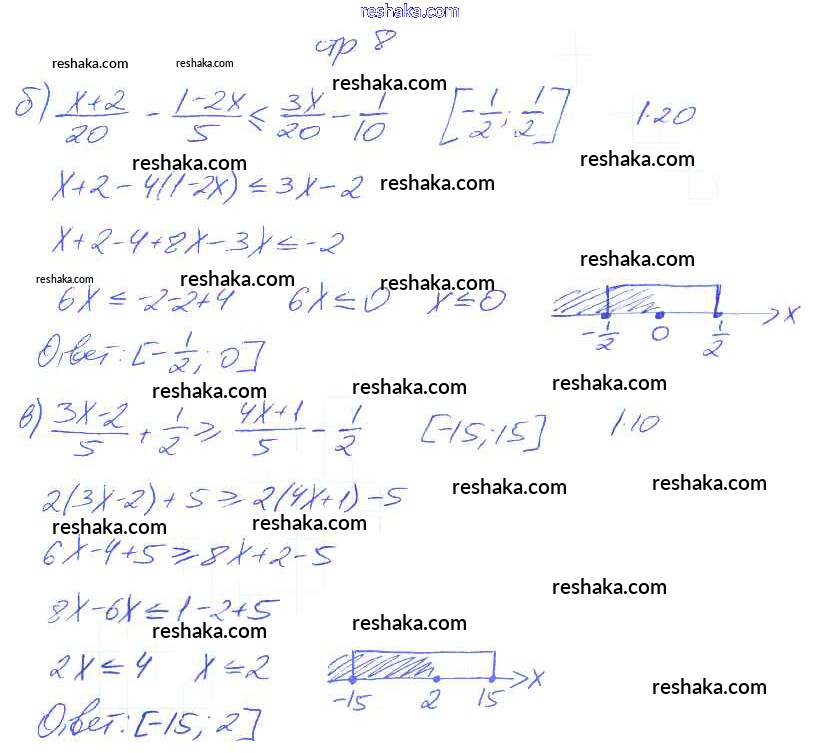 reshaka.com
стр. 8
reshaka.com reshaka.com
reshaka.com
б) \frac{x+2}{20} - \frac{1-2x}{5} ≤ \frac{3x}{20} - \frac{1}{10} [-\frac{1}{2}; \frac{1}{2}] |·20
reshaka.com reshaka.com
x+2-4(1-2x) ≤ 3x-2 reshaka.com
x+2-4+8x-3x ≤ -2
reshaka.com
reshaka.com reshaka.com reshaka.com
6x ≤ -2-2+4 6x ≤ 0 x ≤ 0
-\frac{1}{2} 0 \frac{1}{2} x
Ответ: [-\frac{1}{2}; 0]
reshaka.com reshaka.com reshaka.com
в) \frac{3x-2}{5} + \frac{1}{2} ≥ \frac{4x+1}{5} - \frac{1}{2} [-15; 15] |·10
reshaka.com reshaka.com
2(3x-2)+5 ≥ 2(4x+1)-5
reshaka.com reshaka.com
6x-4+5 ≥ 8x+2-5
reshaka.com
8x-6x ≤ 1-2+5
reshaka.com reshaka.com
2x ≤ 4 x ≤ 2
-15 2 15 x
reshaka.com
Ответ: [-15; 2]